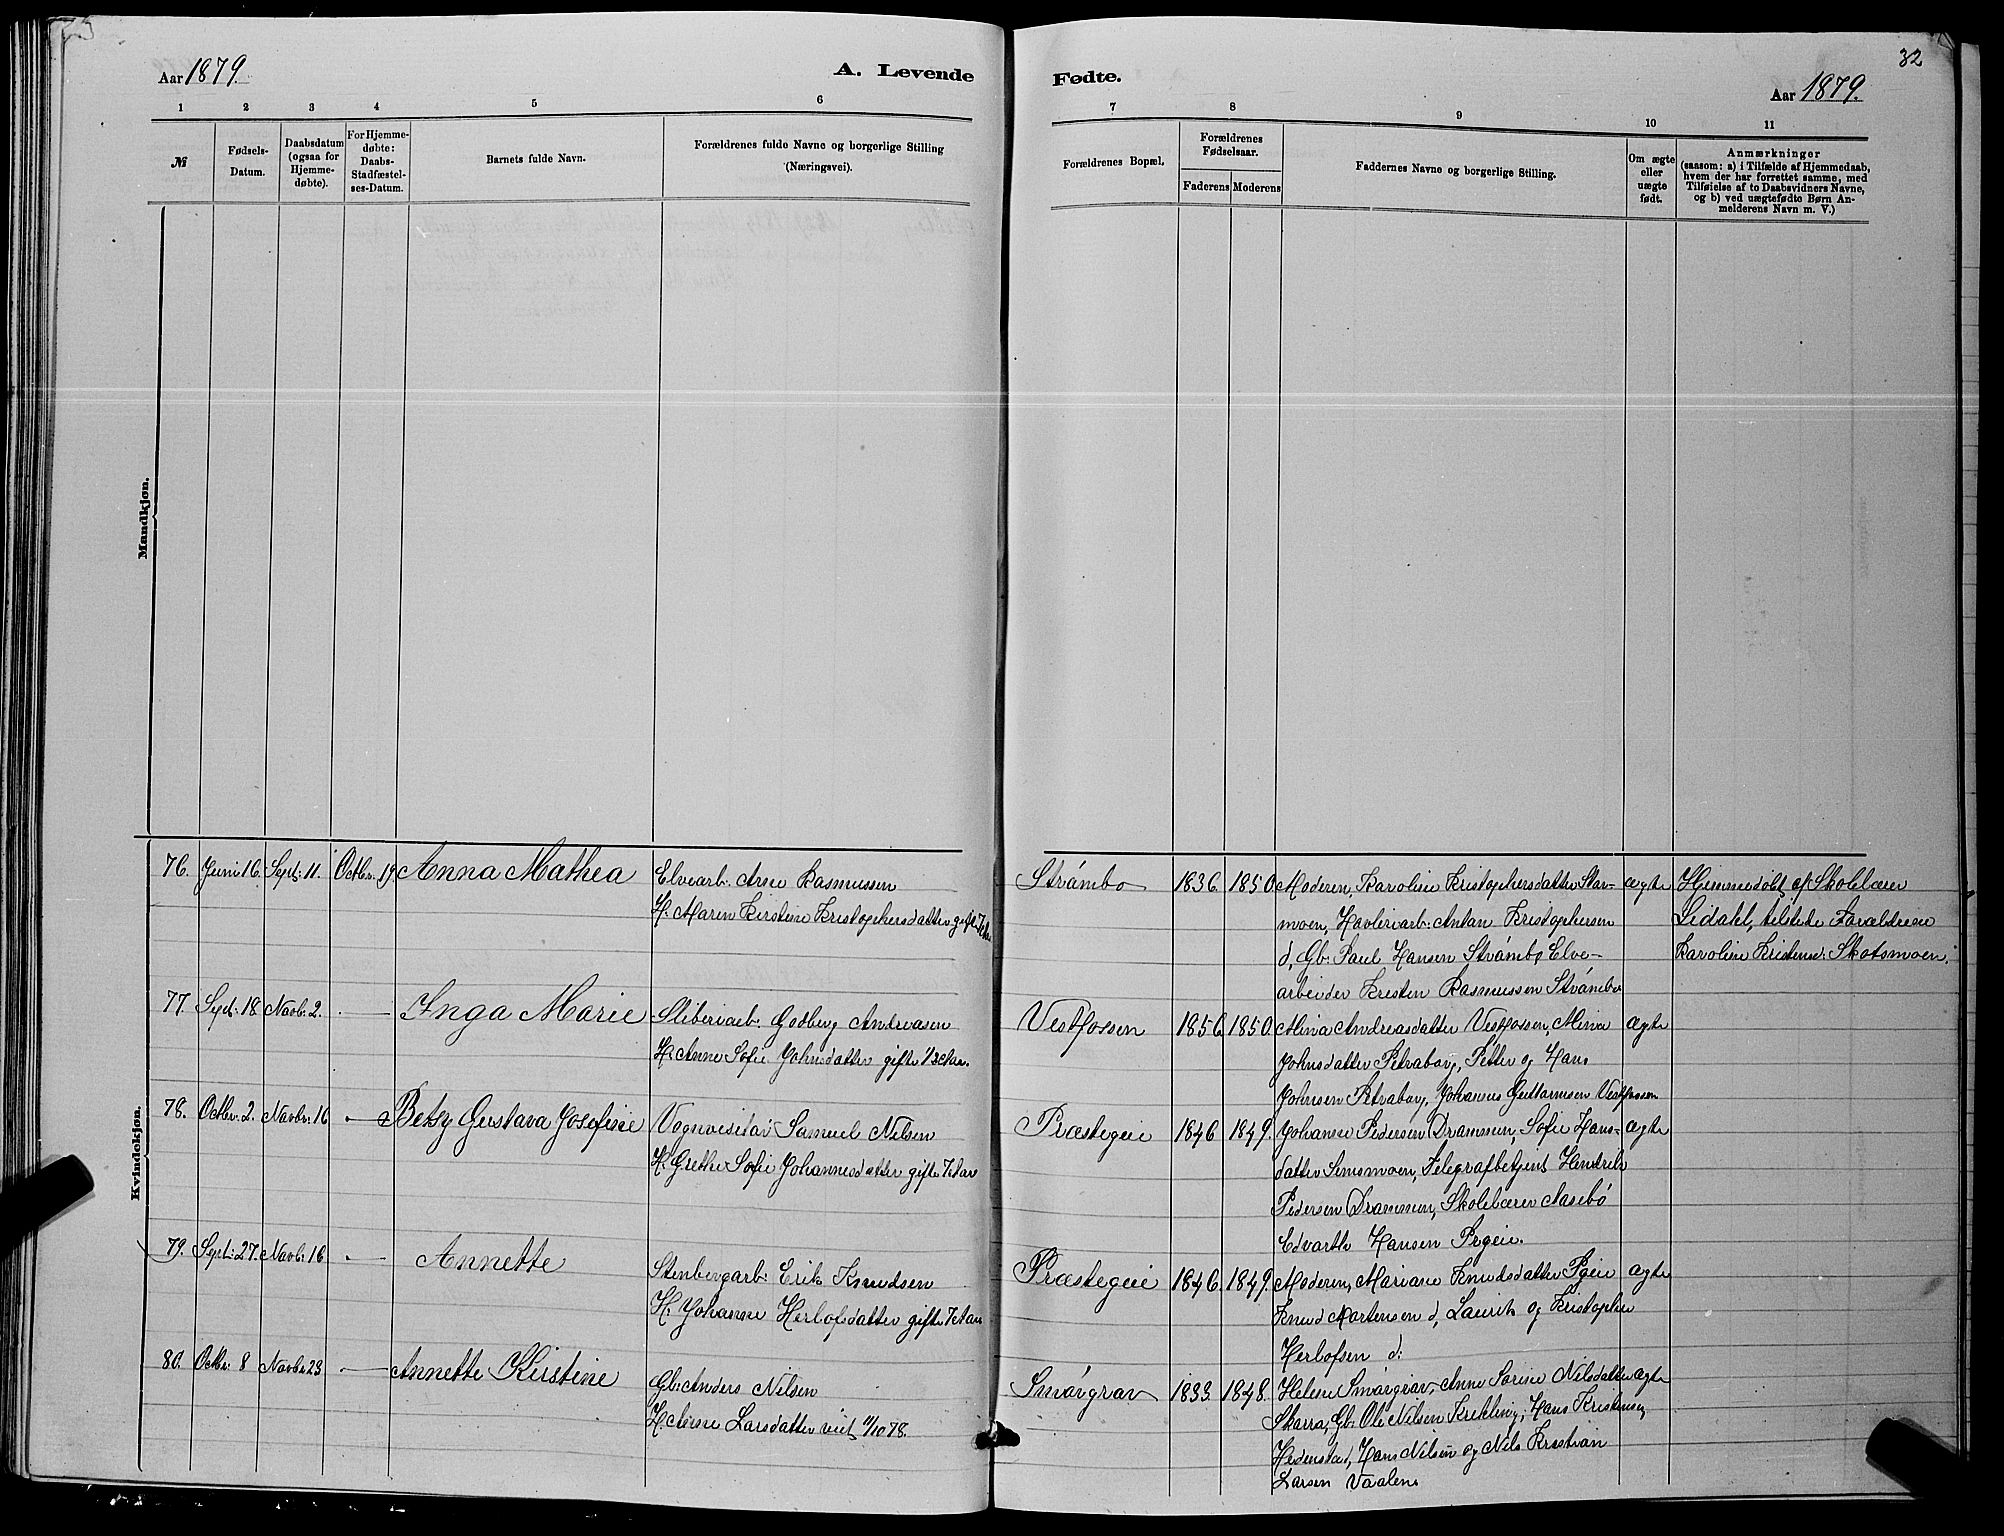 32
Aar 1879.
A. Levende
Fødte.
Aar 1879.
1 2 3 4 5 6 7 8 9 10 11
№
Fødsels-Datum.
Daabsdatum (ogsaa for Hjemmedøbte).
For Hjemmedøbte: Daabs-Stadfæstelses-Datum.
Barnets fulde Navn.
Forældrenes fulde Navne og borgerlige Stilling (Næringsvei).
Forældrenes Bopæl.
Forældrenes Fødselsaar.
Faderens Moderens
Faddernes Navne og borgerlige Stilling.
Om ægte eller uægte født.
Anmærkninger
(saasom: a) i Tilfælde af Hjemmedaab,
hvem der har forrettet samme, med
Tilføielse af to Daabsvidners Navne,
og b) ved uægtefødte Børn An-
melderens Navn m. V.)
Mandkjøn.
Kvindekjøn.
76. Juni 16. Sept: 11. Octbr. 19 Anna Mathea
Elvearb. Arne Rasmussen
H. Maren Kirstine Kristophersdatter gift
Strømbo 1836. 1850.
Moderen, Karoline Kristophersdatter Skots-
moen, Høvleriarb: Anton Kristophersen
d, Gb. Paul Hansen Strømbo, Elve-
arbeider Kristen Rasmussen Strømbo
ægte
Hjemmedøbt af Skolelærer
Lidahl, tilstede Forældrene
Karoline Kristensd: Skotsmoen.
77. Sept: 18 Novb. 2. — Inga Marie
Sliberiarb. Godberg Andreasen
H. Anne Sofie Johnsdatter gifte
Vestfossen 1856. 1850.
Mina Andreasdatter Vestfossen, Mina
Johnsdatter Petraborg, Petter og Hans
Johnsen Petraborg, Johannes Vestfossen
ægte
78. Octbr. 2. Novbr. 16 — Betsy Gustava Josefine
Vognvisitør Samuel Nilsen
H. Grethe Sofie Johannesdatter gifte
Præstegeie 1846 1849.
Johanne Pedersen Drammen, Sofie Hans-
datter Semsmoen, Telegrafbetjent Hendrik
Pedersen Drammen, Skolelærer Aasebø
Edvarth Hansen Prgeie.
ægte
79. Sept: 27. Novb: 16 — Annette
Stenbergarb: Erik Knudsen
H. Johanne Herlofsdatter gifte
Præstegeie 1846. 1849.
Moderen, Mariane Knudsdatter Pgeie
Knud Mortensen d, Laurits og Kristopher
Herlofsen d:
ægte
80. Octbr. 8 Novbr. 23 — Annette Kirstine
Gb: Anders Nilsen
H. Anne Larsdatter viet 11/10 78.
Smørgrav 1833. 1848.
Helene Smørgrav, Anne Sørine Nilsdatter
Skarra, Gb. Ole Nilsen Krekling, Hans Kristensen
Hedenstad, Hans Nilsen og Nils Kristian
Larsen Vaalen
ægte